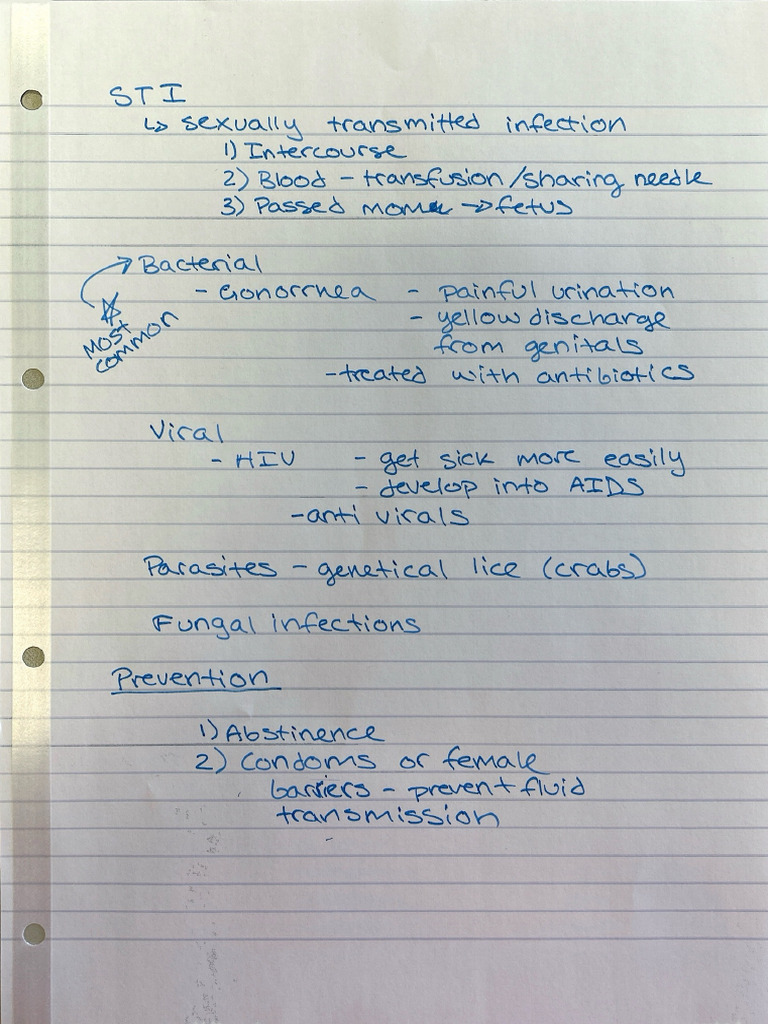 STI
↳ sexually transmitted infection
1) Intercourse
2) Blood - transfusion/sharing needle
3) Passed mom → fetus
Bacterial
- Gonorrhea - painful urination
- yellow discharge
from genitals
☆ Most
common
- treated with antibiotics
Viral
- HIV - get sick more easily
- develop into AIDS
- anti virals
Parasites - genetical lice (crabs)
Fungal infections
Prevention
1) Abstinence
2) Condoms or female
barriers - prevent fluid
transmission